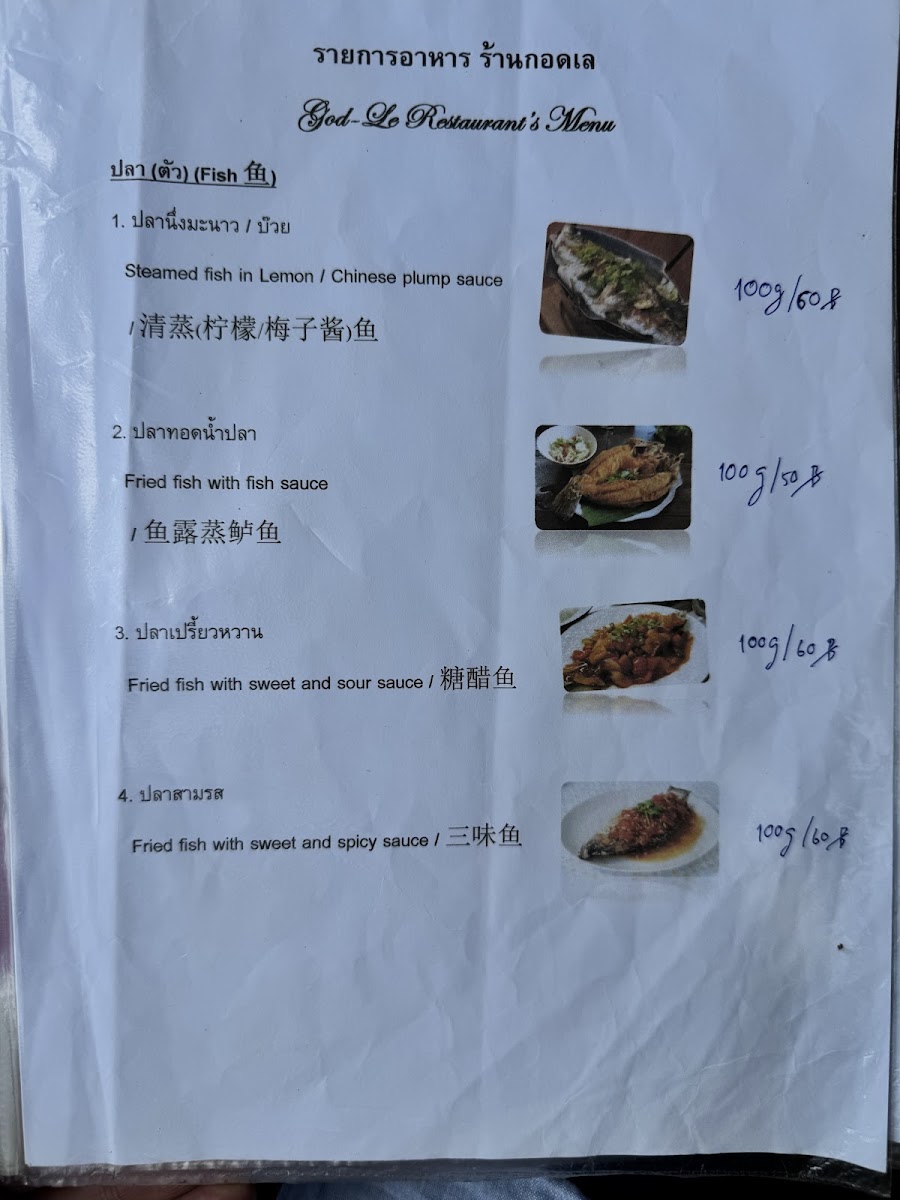 รายการอาหาร ร้านกอดเล
God-Le Restaurant's Menu
ปลา (ตัว) (Fish 鱼)
1. ปลานึ่งมะนาว / บ๊วย
Steamed fish in Lemon / Chinese plump sauce
/ 清蒸(柠檬/梅子酱)鱼
100g/60฿
2. ปลาทอดน้ำปลา
Fried fish with fish sauce
/ 鱼露蒸鲈鱼
100g/50฿
3. ปลาเปรี้ยวหวาน
Fried fish with sweet and sour sauce / 糖醋鱼
100g/60฿
4. ปลาสามรส
Fried fish with sweet and spicy sauce / 三味鱼
100g/60฿